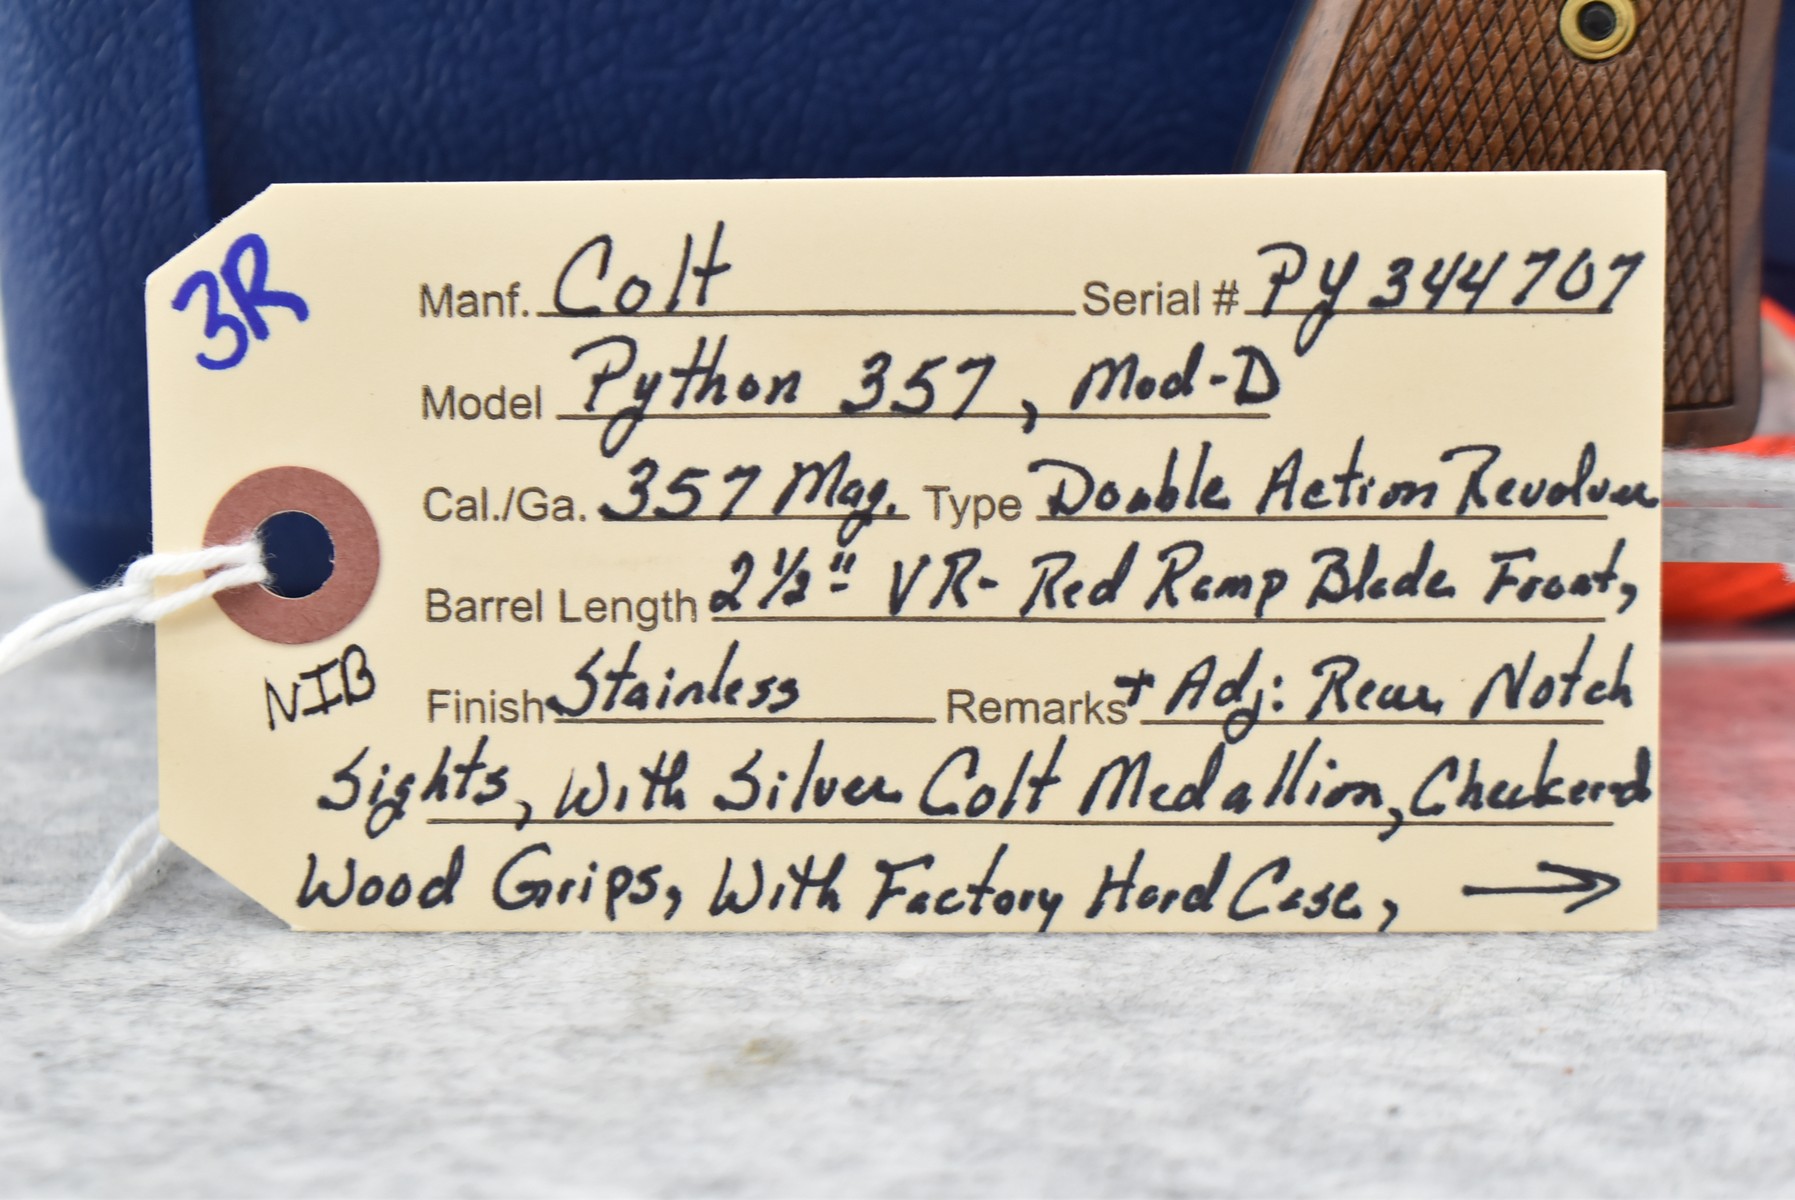 3R
Manf. Colt Serial # PY344707
Model Python 357, Mod-D
Cal./Ga. 357 Mag. Type Double Action Revolver
Barrel Length 2 1/2" VR- Red Ramp Blade Front,
NIB
Finish Stainless Remarks + Adj: Rear Notch
Sights, With Silver Colt Medallion, Checkered
Wood Grips, With Factory Hard Case, →